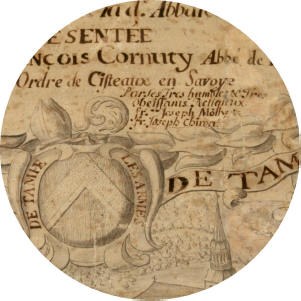 la d. Abbaïe
ESENTÉE
nçois Cornuty Abbé de
Ordre de Cisteaux en Savoye
Par ses Tres humbles & Tres
obeissants Religieux
fr. Joseph
fr. Joseph
LES ARMES
DE TAMIE
DE TAM